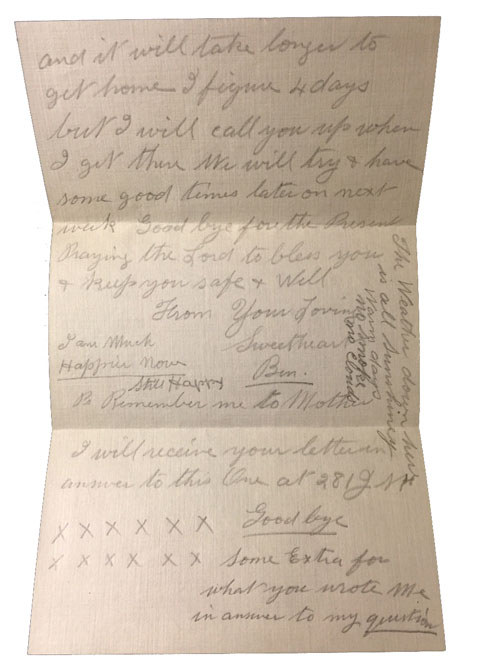 and it will take longer to
get home I figure 4 days
but I will call you up when
I get there We will try & have
some good times later on next
week Good bye for the Present
Praying the Lord to bless you
& keep you safe & Well
From Your Loving
Sweetheart
Ben.
I am Much
Happier Now
Still Happy
Ps Remember me to Mother
I will receive your letter in
answer to this One at 281
Good bye
x x x x x x
x x x x x x
Some Extra for
what you wrote Me
in answer to my question
The Weather down here
is all Sunshiney
Warm days
no
and Clouds